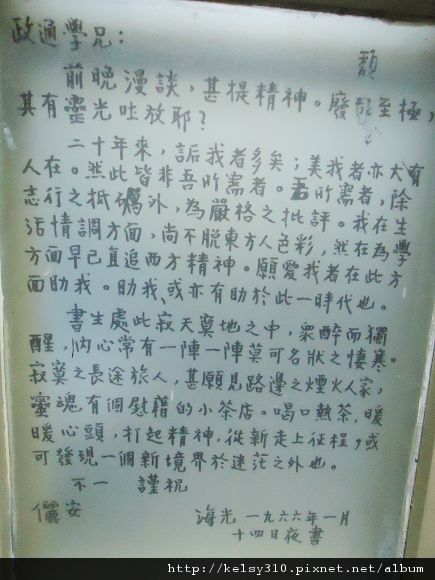 政通學兄：
前晚漫談，甚提精神。廢〔頹〕至極，
其有靈光吐放耶？
二十年來，詬我者多矣；美我者亦大有
人在。然此皆非吾所需者。吾所需者，除
志行之抵礪外，為嚴格之批評。我在生
活情調方面，尚不脫東方人色彩，然在為學
方面早已直追西方精神。願愛我者在此方
面助我。助我，或亦有助於此一時代也。
書生處此寂天寞地之中，衆醉而獨
醒，內心常有一陣一陣莫可名狀之悽寒。
寂寞之長途旅人，甚願見路邊之煙火人家，
靈魂有個慰藉的小茶店。喝口熱茶，暖
暖心頭，打起精神，從新走上征程，或
可發現一個新境界於迷茫之外也。
不一 謹祝
儷安
海光 一九六六年一月
十四日夜書
http://kelsy310.pixnet.net/album